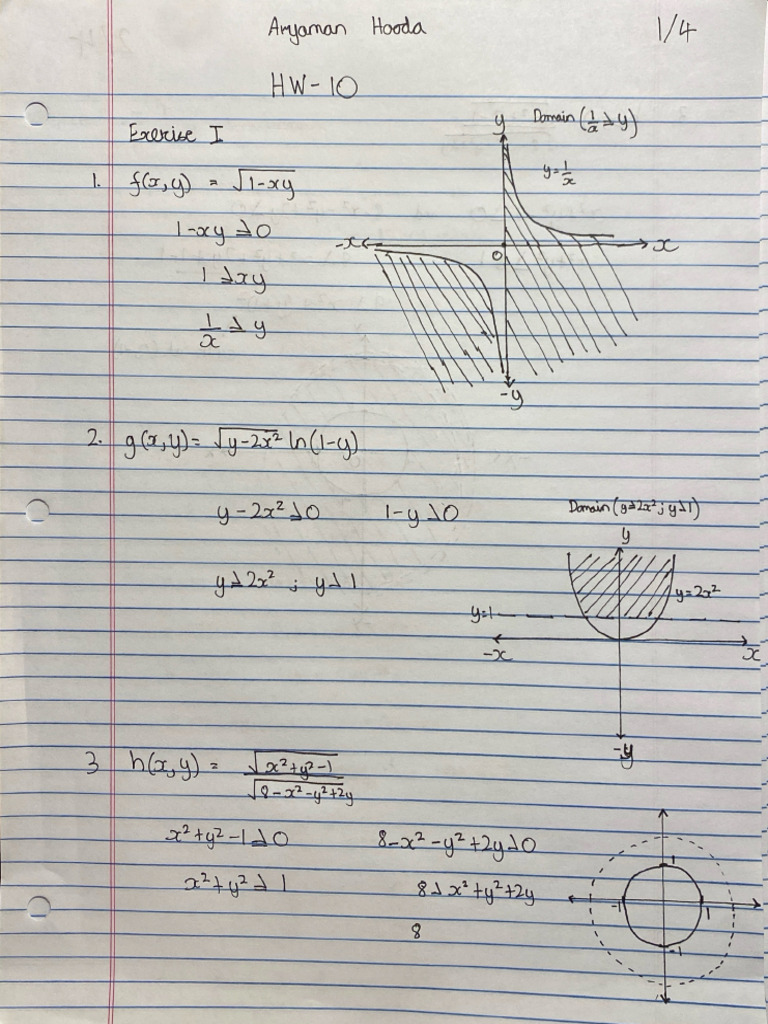 Aryaman Hooda
1/4
HW-10
Exercise I
Domain (1/x ≥ y)
1. f(x,y) = √(1-xy)
1-xy ≥ 0
1 ≥ xy
1/x ≥ y
y
y=1/x
-x
x
0
-y
2. g(x,y) = √(y-2x²) ln(1-y)
y-2x² ≥ 0 1-y ≥ 0
y ≥ 2x² ; y ≥ 1
Domain (y ≥ 2x² ; y ≥ 1)
y
y=2x²
y=1
-x
x
-y
3 h(x,y) = √(x²+y²-1) / √(8-x²-y²+2y)
x²+y²-1 ≥ 0 8-x²-y²+2y ≥ 0
x²+y² ≥ 1 8 ≥ x²+y²+2y
8
1
-1
1
-1